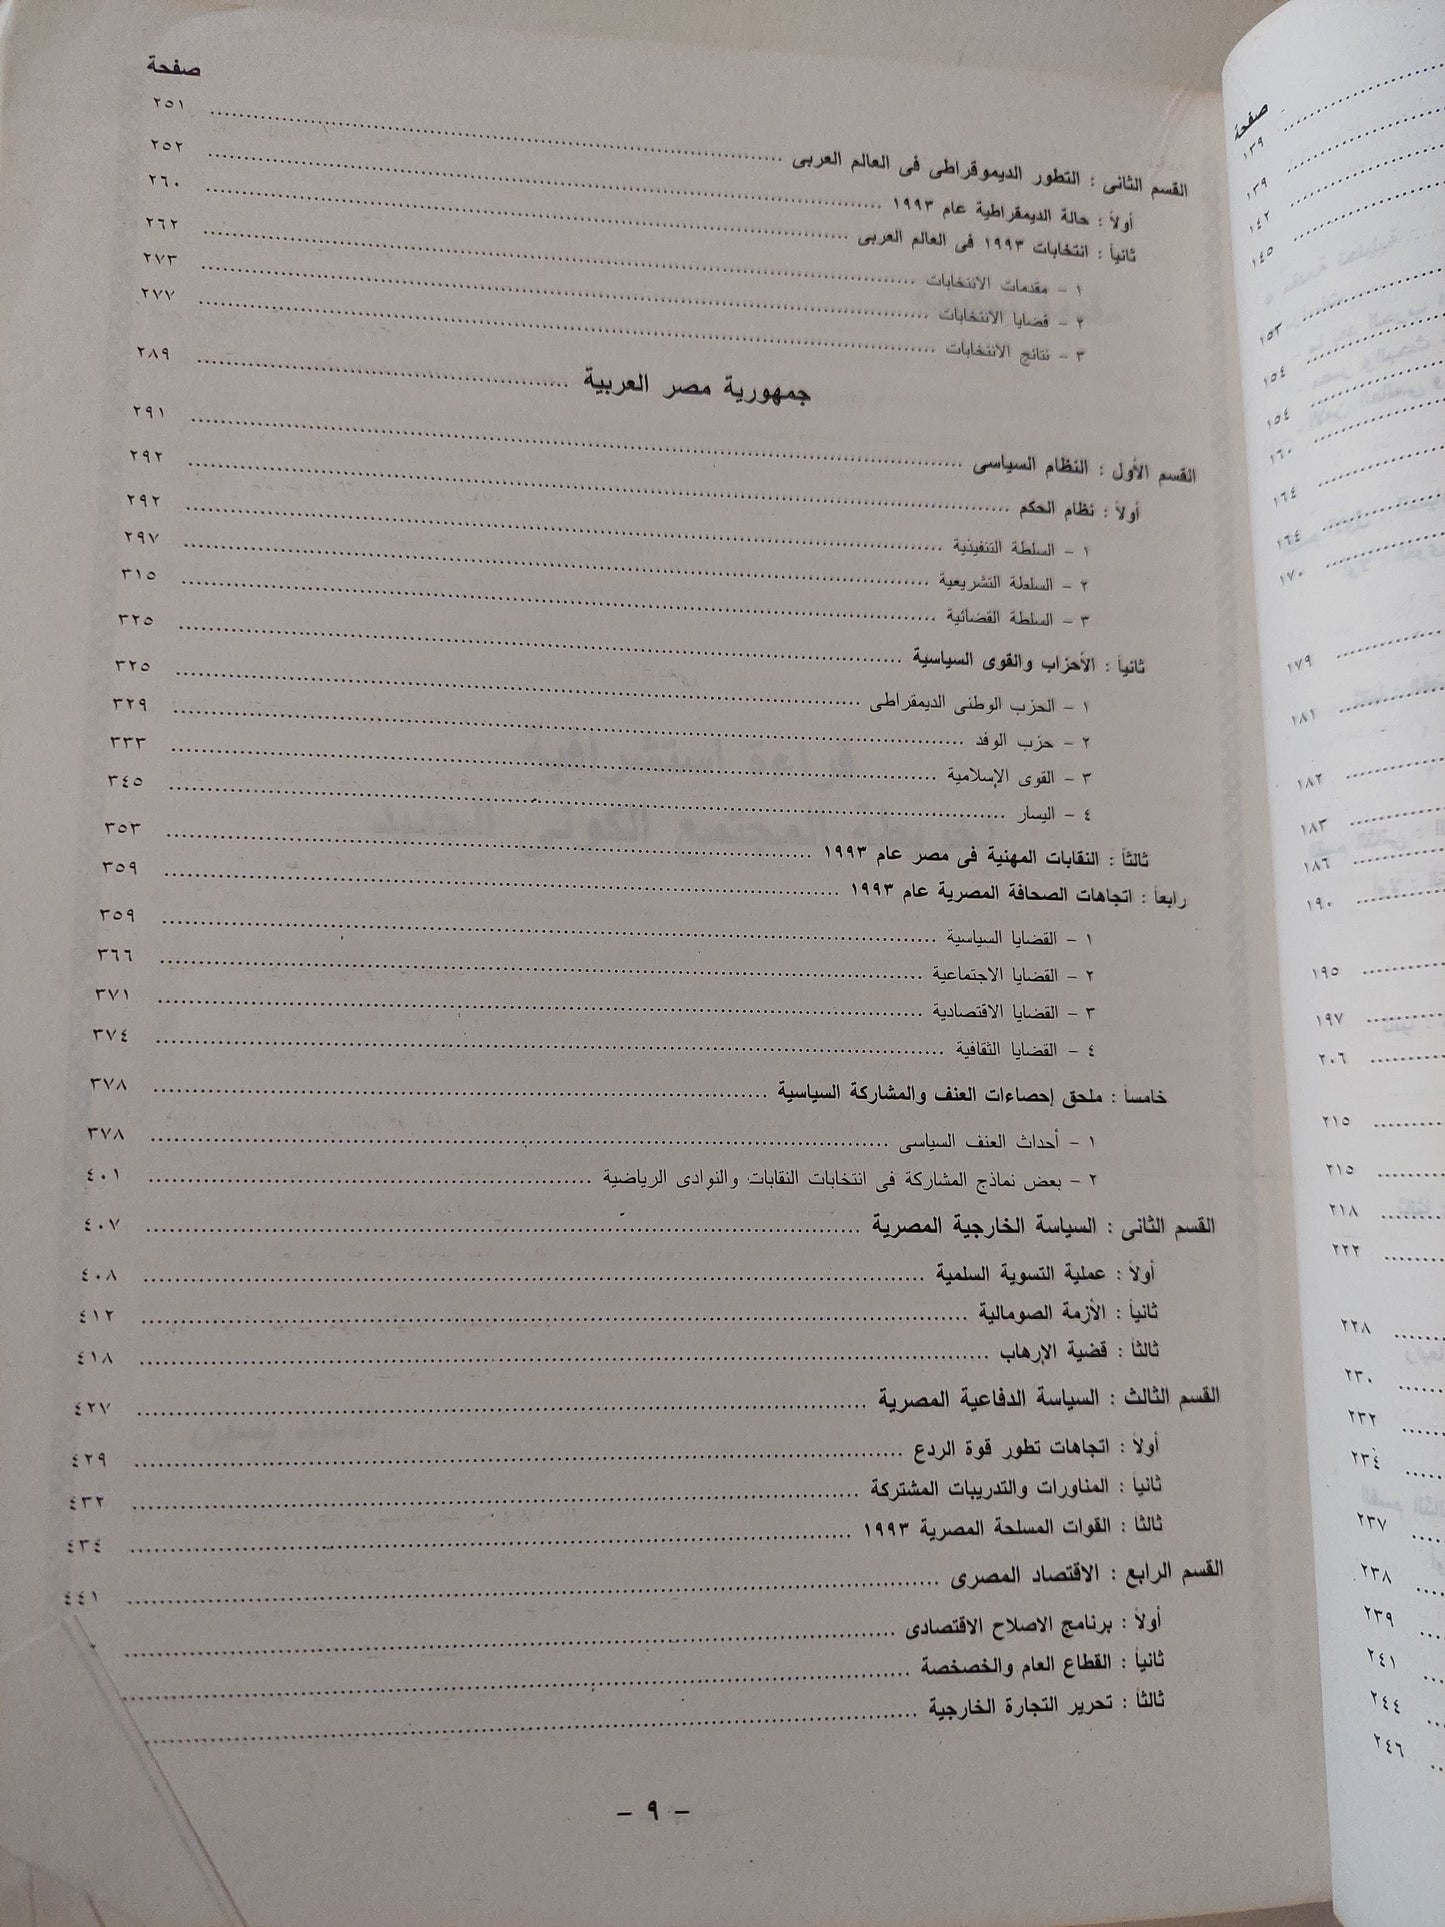 صفحة
القسم الثانى : التطور الديموقراطى فى العالم العربى ........ ٢٥١
أولاً : حالة الديمقراطية عام ١٩٩٣ ........ ٢٥٢
ثانياً : انتخابات ١٩٩٣ فى العالم العربى ........ ٢٦٠
١ - مقدمات الانتخابات ........ ٢٦٢
٢ - قضايا الانتخابات ........ ٢٧٣
٣ - نتائج الانتخابات ........ ٢٧٧
جمهورية مصر العربية ........ ٢٨٩
القسم الأول : النظام السياسى ........ ٢٩١
أولاً : نظام الحكم ........ ٢٩٢
١ - السلطة التنفيذية ........ ٢٩٢
٢ - السلطة التشريعية ........ ٢٩٧
٣ - السلطة القضائية ........ ٣١٥
ثانياً : الأحزاب والقوى السياسية ........ ٣٢٥
١ - الحزب الوطنى الديمقراطى ........ ٣٢٥
٢ - حزب الوفد ........ ٣٢٩
٣ - القوى الإسلامية ........ ٣٣٣
٤ - اليسار ........ ٣٤٥
ثالثاً : النقابات المهنية فى مصر عام ١٩٩٣ ........ ٣٥٣
رابعاً : اتجاهات الصحافة المصرية عام ١٩٩٣ ........ ٣٥٩
١ - القضايا السياسية ........ ٣٥٩
٢ - القضايا الاجتماعية ........ ٣٦٦
٣ - القضايا الاقتصادية ........ ٣٧١
٤ - القضايا الثقافية ........ ٣٧٤
خامساً : ملحق إحصاءات العنف والمشاركة السياسية ........ ٣٧٨
١ - أحداث العنف السياسى ........ ٣٧٨
٢ - بعض نماذج المشاركة فى انتخابات النقابات والنوادى الرياضية ........ ٤٠١
القسم الثانى : السياسة الخارجية المصرية ........ ٤٠٧
أولاً : عملية التسوية السلمية ........ ٤٠٨
ثانياً : الأزمة الصومالية ........ ٤١٢
ثالثاً : قضية الإرهاب ........ ٤١٨
القسم الثالث : السياسة الدفاعية المصرية ........ ٤٢٧
أولاً : اتجاهات تطور قوة الردع ........ ٤٢٩
ثانياً : المناورات والتدريبات المشتركة ........ ٤٣٢
ثالثاً : القوات المسلحة المصرية ١٩٩٣ ........ ٤٣٤
القسم الرابع : الاقتصاد المصرى ........ ٤٤١
أولاً : برنامج الاصلاح الاقتصادى ........
ثانياً : القطاع العام والخصخصة ........
ثالثاً : تحرير التجارة الخارجية ........
- ٩ -
صفحة
١٣٩
١٣٩
١٤٢
١٤٥
١٥٣
١٥٤
١٥٤
١٦٠
١٦٤
١٦٤
١٧٠
١٧٩
١٨١
١٨٢
١٨٣
١٨٦
١٩٠
١٩٥
١٩٧
٢٠٦
٢١٥
٢١٥
٢١٨
٢٢٢
٢٢٨
٢٣٠
٢٣٢
٢٣٤
٢٣٧
٢٣٨
٢٣٩
٢٤١
٢٤٤
٢٤٦